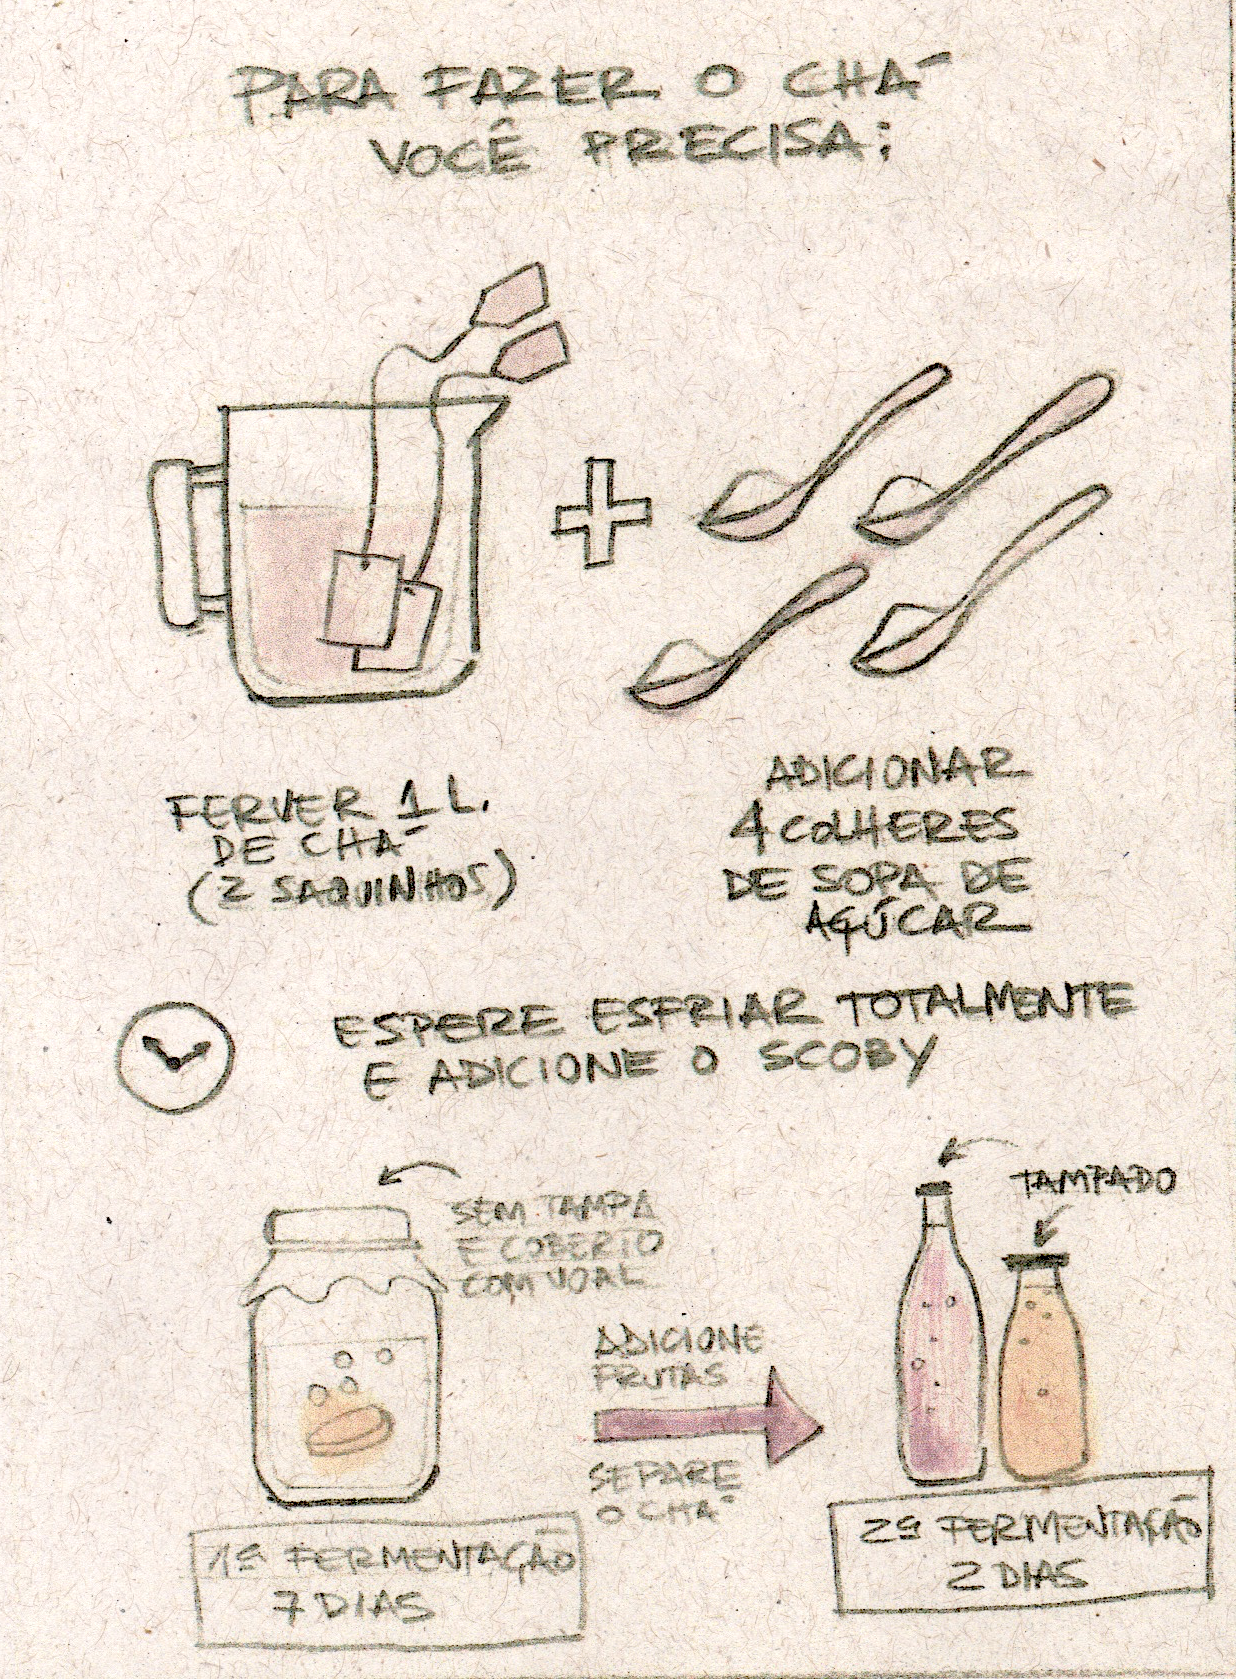 PARA FAZER O CHÁ
VOCÊ PRECISA:
FERVER 1 L.
DE CHÁ
(2 SAQUINHOS)
ADICIONAR
4 COLHERES
DE SOPA DE
AÇÚCAR
ESPERE ESFRIAR TOTALMENTE
E ADICIONE O SCOBY
SEM TAMPA
E COBERTO
COM VOAL
TAMPADO
ADICIONE
FRUTAS
SEPARE
O CHÁ
1ª FERMENTAÇÃO
7 DIAS
2ª FERMENTAÇÃO
2 DIAS